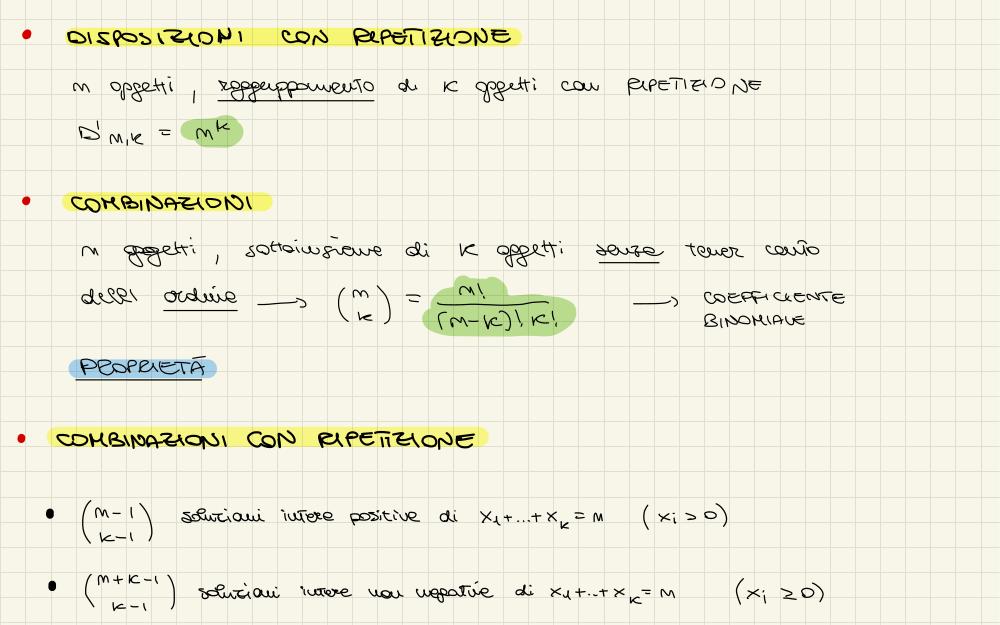 • DISPOSIZIONI CON RIPETIZIONE
n oggetti, raggruppamento di K oggetti con RIPETIZIONE
D'n,k = n^k
• COMBINAZIONI
n oggetti, sottoinsieme di K oggetti senza tener conto
dell' ordine → (n k) = n! / (n-k)! k! → COEFFICIENTE BINOMIALE
PROPRIETÀ
• COMBINAZIONI CON RIPETIZIONE
• (n-1 k-1) soluzioni intere positive di x1+...+xk = n (xi > 0)
• (n+k-1 k-1) soluzioni intere non negative di x1+...+xk = n (xi ≥ 0)